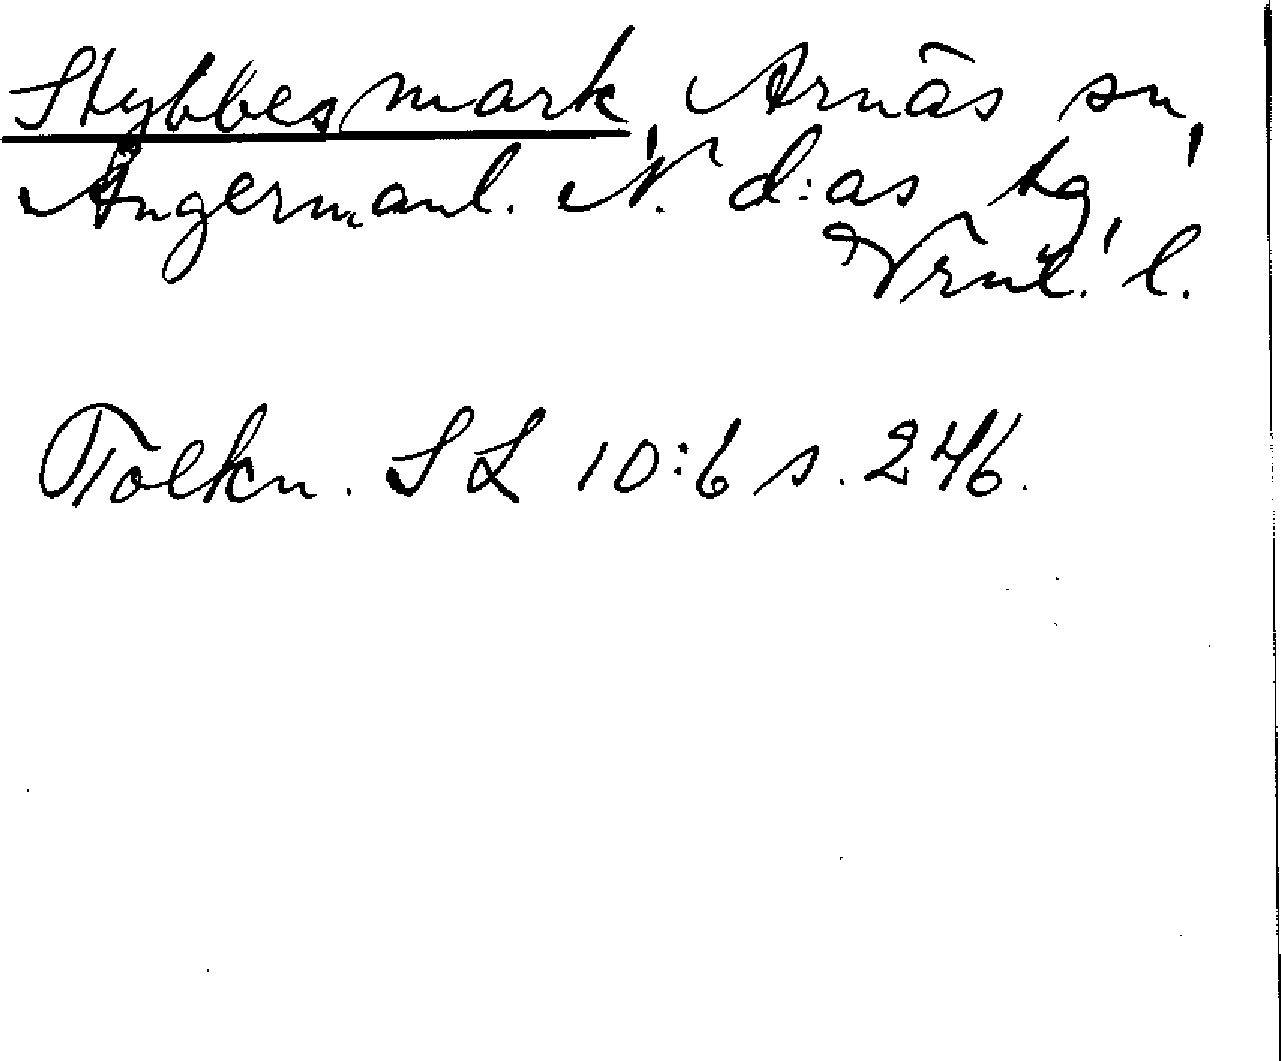 Stybbesmark, Arnäs sn,
Ångermanl. N. d:as hg,
Vrnl. l.
Tolkn. SL 10:6 s. 246.